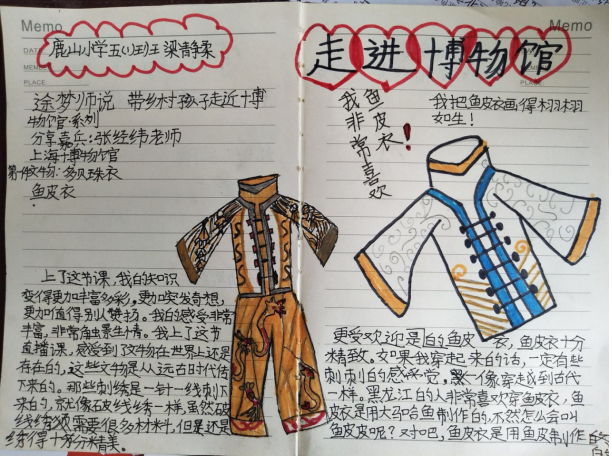 Memo
鹿山小学五(1)班 梁静柔
DATE
PLACE:
途梦师说 带乡村孩子走近博
物馆系列
分享嘉宾:张经纬老师
上海博物馆
第一件文物:多贝珠衣
鱼皮衣
上了这节课,我的知识
变得更加丰富多彩,更加突发奇想,
更加值得别人赞扬。我的感受非常
丰富,非常触景生情。我上了这节
直播课,感受到了文物在世界上还是
存在的,这些文物是从远古时代传
下来的。那些刺绣是一针一线刺下
来的,就像石皮线绣一样,虽然破
线绣必须需要很多材料,但是还是
绣得十分精美。
Memo
走进博物馆
我非常喜欢
鱼皮衣!
我把鱼皮衣画得栩栩
如生!
更受欢迎是白的鱼皮衣,鱼皮衣十分
精致。如果我穿起来的话,一定有些
刺刺的感觉,像穿越到古代
一样。黑龙江的人非常喜欢穿鱼皮衣,鱼
皮衣是用大马哈鱼制作的,不然怎么会叫
鱼皮皮呢?对吧,鱼皮衣是用鱼皮制作